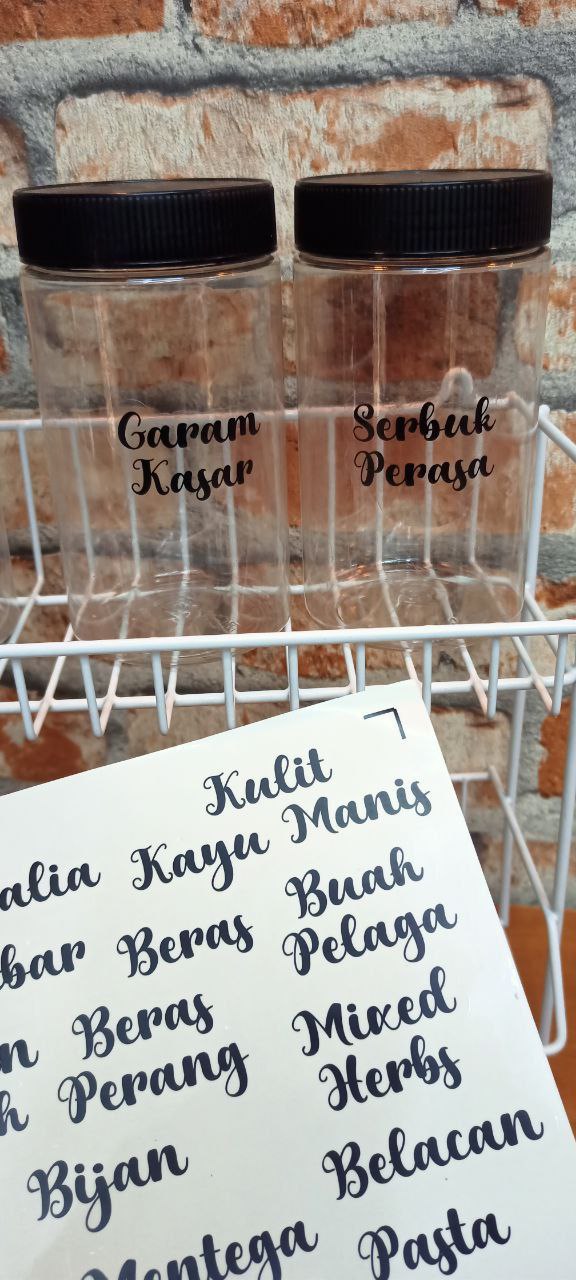 Garam
Kasar
Serbuk
Perasa
Kulit
Kayu Manis
Buah
Beras
Pelaga
Beras
Perang
Mixed
Herbs
Bijan
Belacan
Mentega
Pasta